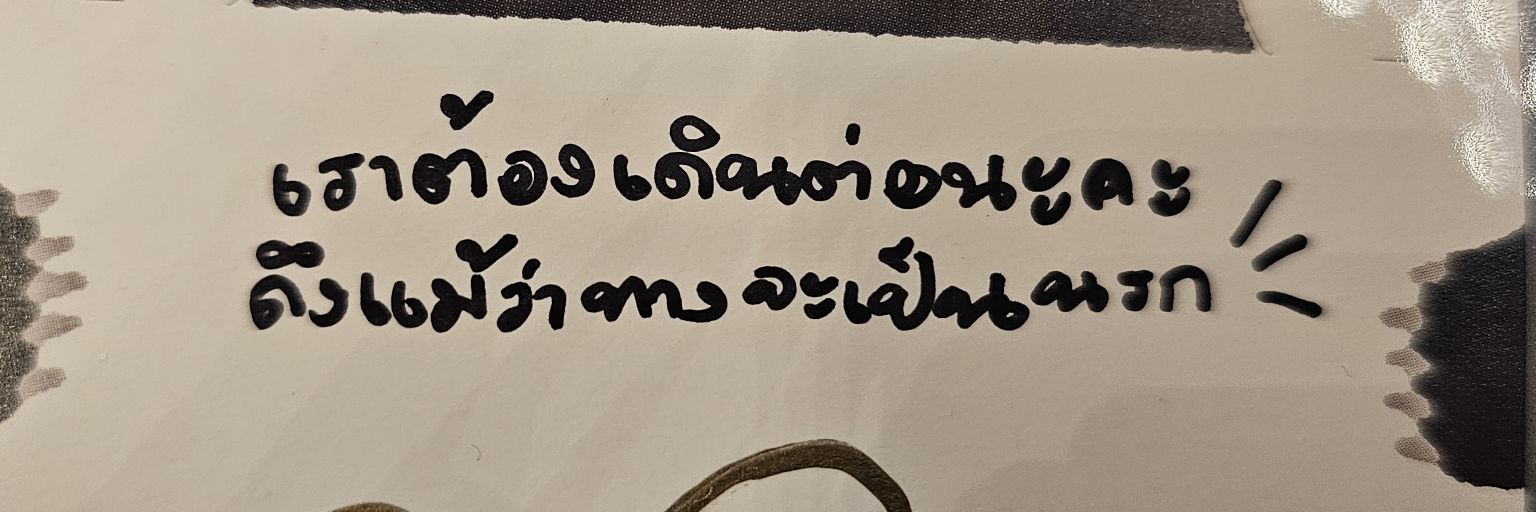 เราต้องเดินต่อนะคะ
ถึงแม้ว่าทางจะเป็นนรก